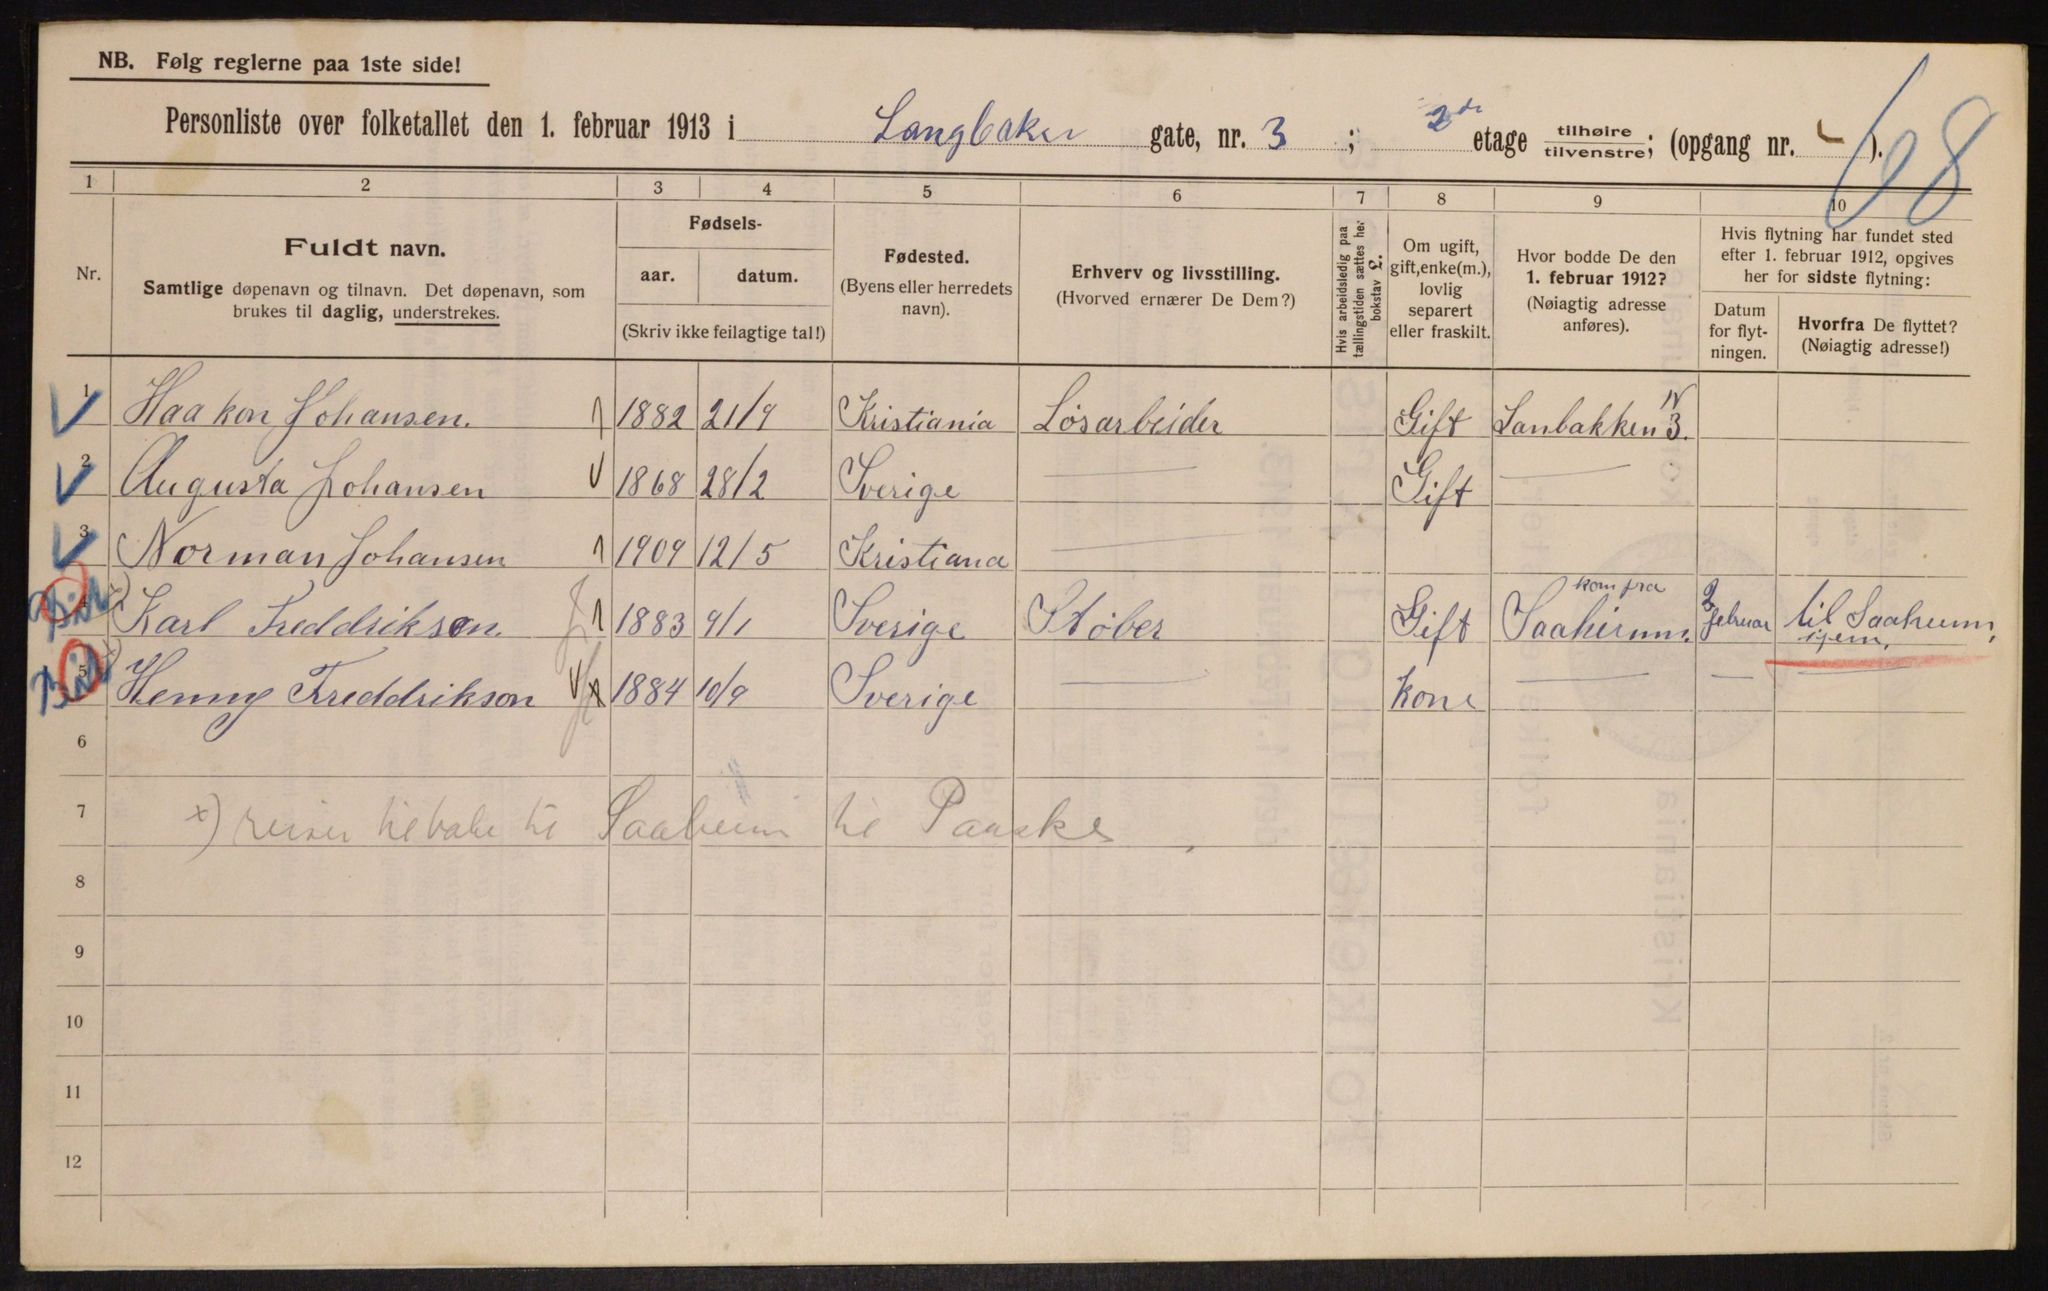 NB. Følg reglerne paa 1ste side!
68
Personliste over folketallet den 1. februar 1913 i Langbaker gate, nr. 3 ; 2de etage tilhøire/tilvenstre; (opgang nr. ).
1 2 3 4 5 6 7 8 9 10
Nr.
Fuldt navn.
Samtlige døpenavn og tilnavn. Det døpenavn, som
brukes til daglig, understrekes.
Fødsels-
aar. datum.
(Skriv ikke feilagtige tal!)
Fødested.
(Byens eller herredets
navn).
Erhverv og livsstilling.
(Hvorved ernærer De Dem?)
Hvis arbeidsledig paa
tællingstiden sættes her
bokstav L.
Om ugift,
gift, enke(m.),
lovlig
separert
eller fraskilt.
Hvor bodde De den
1. februar 1912?
(Nøiagtig adresse
anføres).
Hvis flytning har fundet sted
efter 1. februar 1912, opgives
her for sidste flytning:
Datum
for flyt-
ningen.
Hvorfra De flyttet?
(Nøiagtig adresse!)
1 Haakon Johansen. 1882 21/9 Kristiania Løsarbeider Gift Lanbakken N 3.
2 Augusta Johansen 1868 28/2 Sverige — Gift —
3 Norman Johansen 1909 12/5 Kristiana —
4 x) Karl Freddrikson. 1883 9/1 Sverige Støber Gift kom fra Saaheimm. 2 februar til Saaheim igjem.
5 x) Henny Freddrikson 1884 10/9 Sverige — kone — — —
6
7 x) reiser tilbake til Saaheim til Paaske
8
9
10
11
12